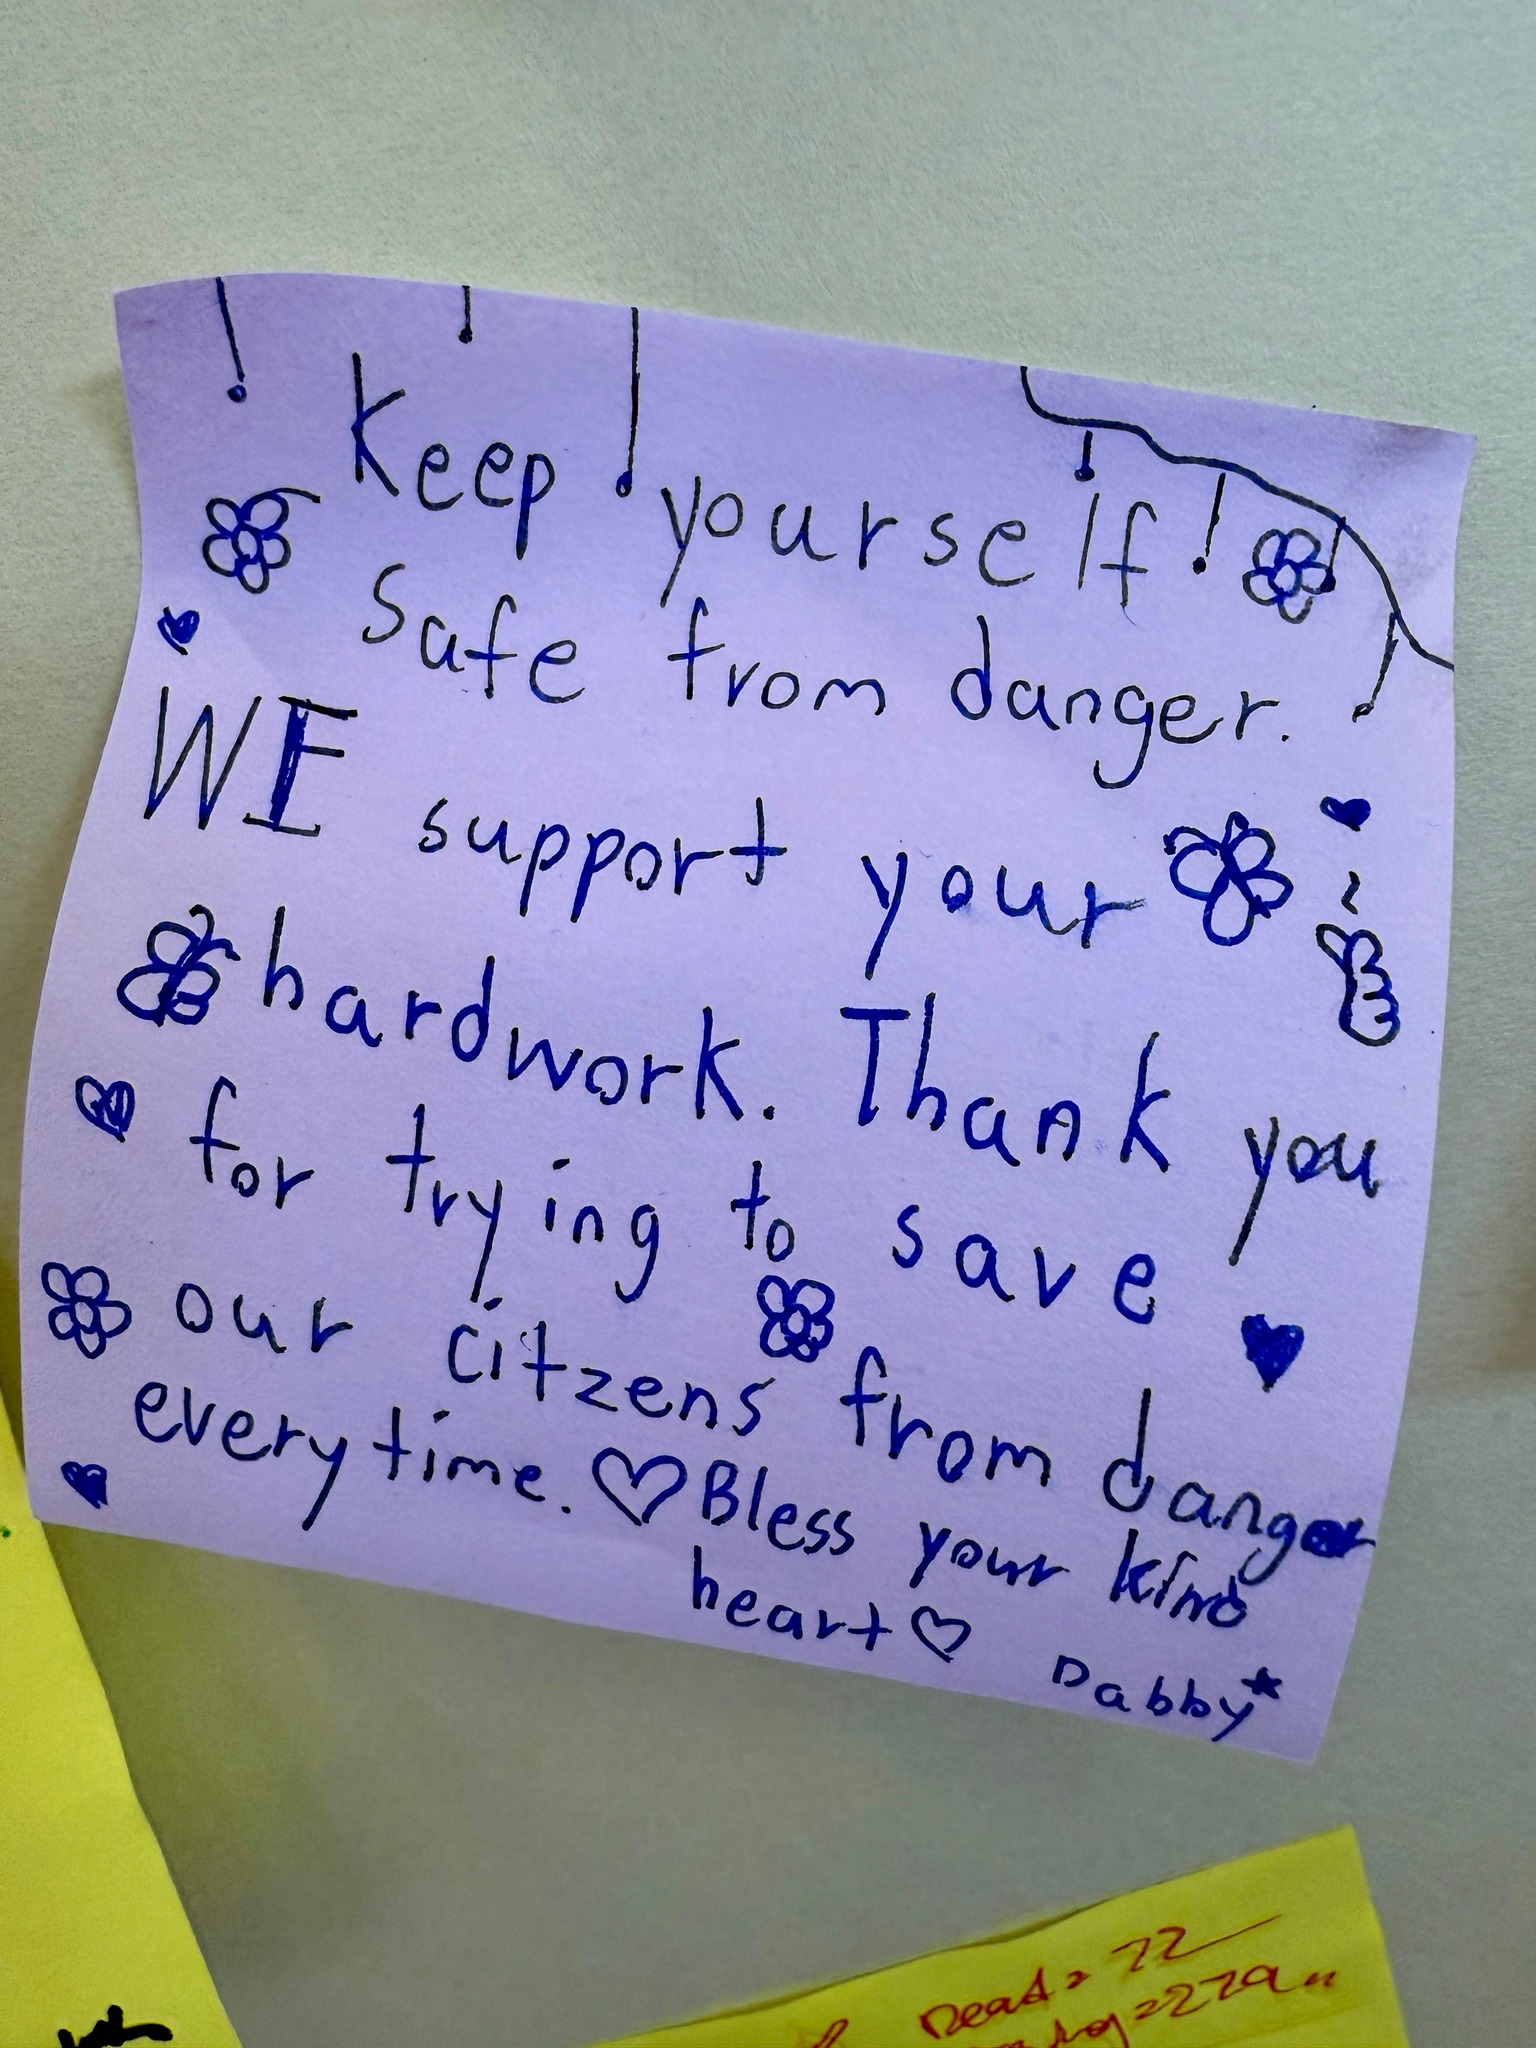 Keep yourself
Safe from danger.
WE support your
hardwork. Thank you
for trying to save
our citzens from danger
everytime. Bless your kind
heart
Dabby
Dead = 22